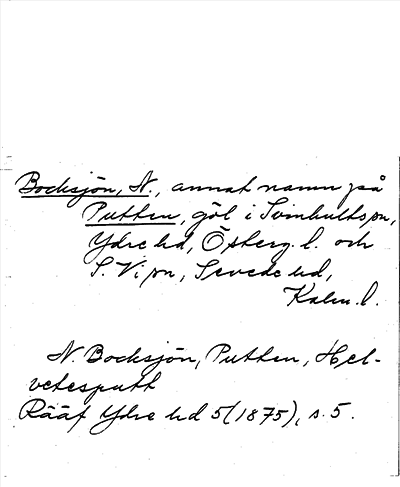 Bocksjön, N., annat namn på
Putten, göl i Svinhults sn,
Ydre hd, Österg. l. och
S. Vi sn, Sevede hd,
Kalm. l.
N. Bocksjön, Putten, Hel-
vetesputt
Rääf Ydre hd 5 (1875), s. 5.